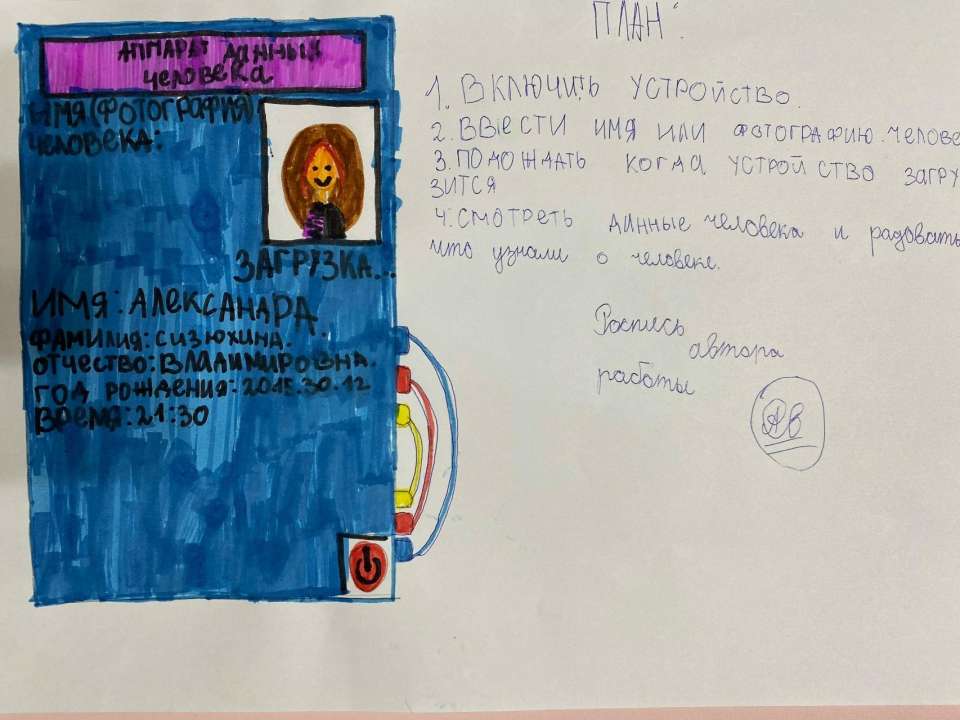 АППАРАТ ДАННЫХ
ЧЕЛОВЕКА
ИМЯ(ФОТОГРАФИЯ)
ЧЕЛОВЕКА:
ЗАГРУЗКА...
ИМЯ: АЛЕКСАНДРА
ФАМИЛИЯ: СИЗЮХИНА.
ОТЧЕСТВО: ВЛАДИМИРОВНА.
ГОД РОЖДЕНИЯ: 2015.30.12
ВРЕМЯ: 21:30
ПЛАН:
1. ВКЛЮЧИТЬ УСТРОЙСТВО.
2. ВВЕСТИ ИМЯ ИЛИ ФОТОГРАФИЮ ЧЕЛОВЕ
3. ПОДОЖДАТЬ КОГДА УСТРОЙСТВО ЗАГРУ
ЗИТСЯ
4. СМОТРЕТЬ ДАННЫЕ ЧЕЛОВЕКА И РАДОВАТЬ
ЧТО УЗНАЛИ О ЧЕЛОВЕКЕ.
Роспись
автора
работы
АВ